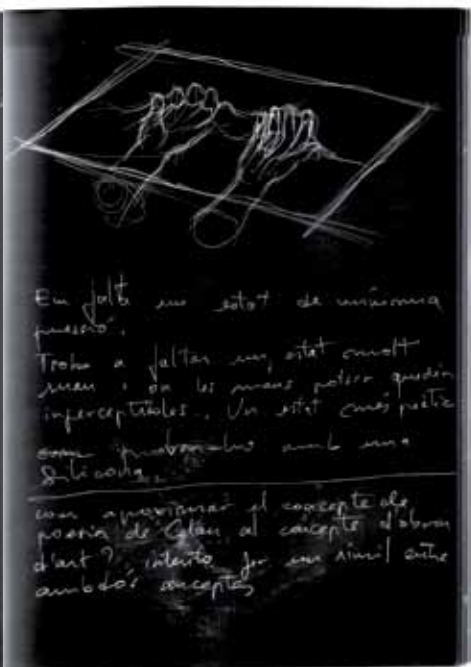 Em falta un estat de mínima
pressió.
Trobo a faltar un estat molt
suau i on les mans potser quedin
imperceptibles. Un estat més poètic
probar-ho amb una
Silicona.
com aproximar el concepte de
poesia de Celan al concepte d'obra
d'art? intento fer un símil entre
ambdós conceptes